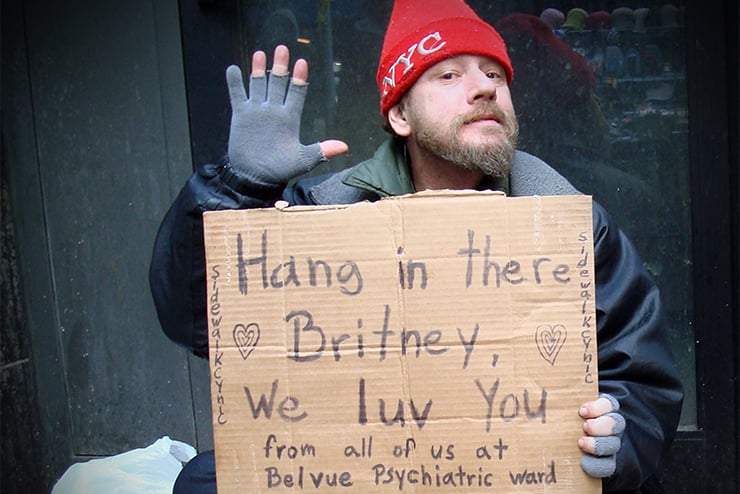 NYC
Hang in there
Britney,
We luv You
from all of us at
Belvue Psychiatric ward
sidewalkcynic
sidewalkcynic